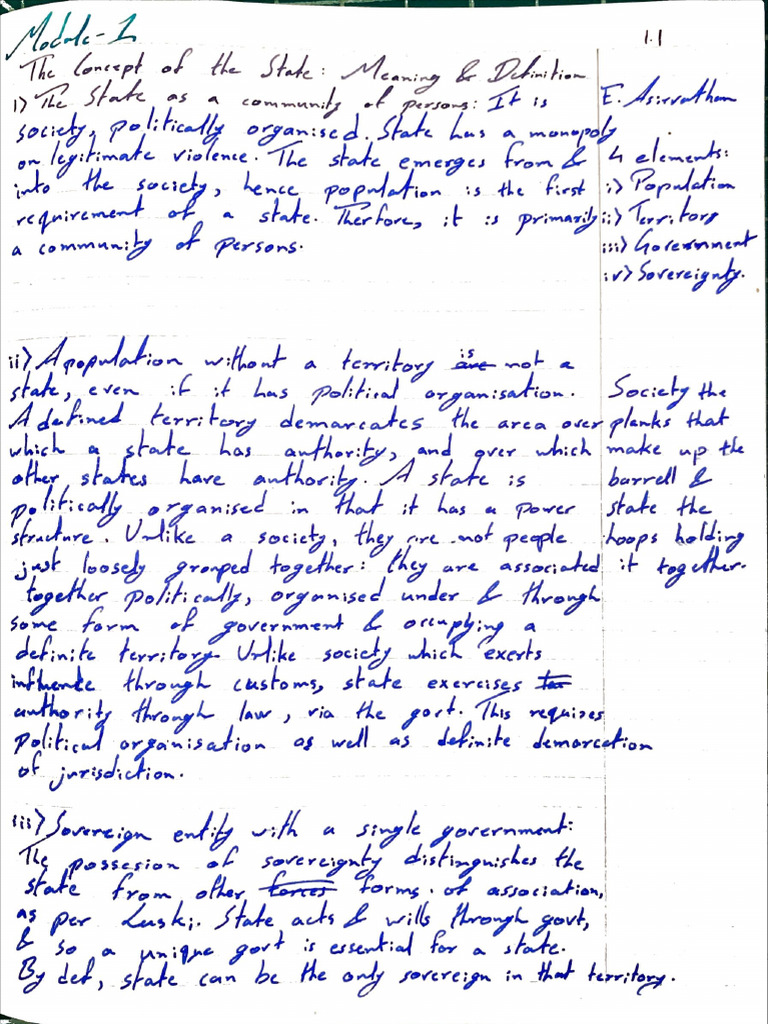 Module-1
1.1
The Concept of the State: Meaning & Definition
i) The State as a community of persons: It is
society, politically organised. State has a monopoly
on legitimate violence. The state emerges from &
into the society, hence population is the first
requirement of a state. Therfore, it is primarily
a community of persons.
E. Asirvatham
4 elements:
i) Population
ii) Territory
iii) Government
iv) Sovereignty.
ii) A population without a territory is not a
state, even if it has political organisation.
A defined territory demarcates the area over
which a state has authority, and over which
other states have authority. A state is
politically organised in that it has a power
structure. Unlike a society, they are not people
just loosely grouped together: they are associated
together politically, organised under & through
some form of government & occupying a
definite territory. Unlike society which exerts
influence through customs, state exercises
authority through law, via the govt. This requires
political organisation as well as definite demarcation
of jurisdiction.
Society the
planks that
make up the
barrell &
state the
hoops holding
it together.
iii) Sovereign entity with a single government:
The possesion of sovereignty distinguishes the
state from other forces forms of association,
as per Laski. State acts & wills through govt,
& so a unique govt is essential for a state.
By def, state can be the only sovereign in that territory.